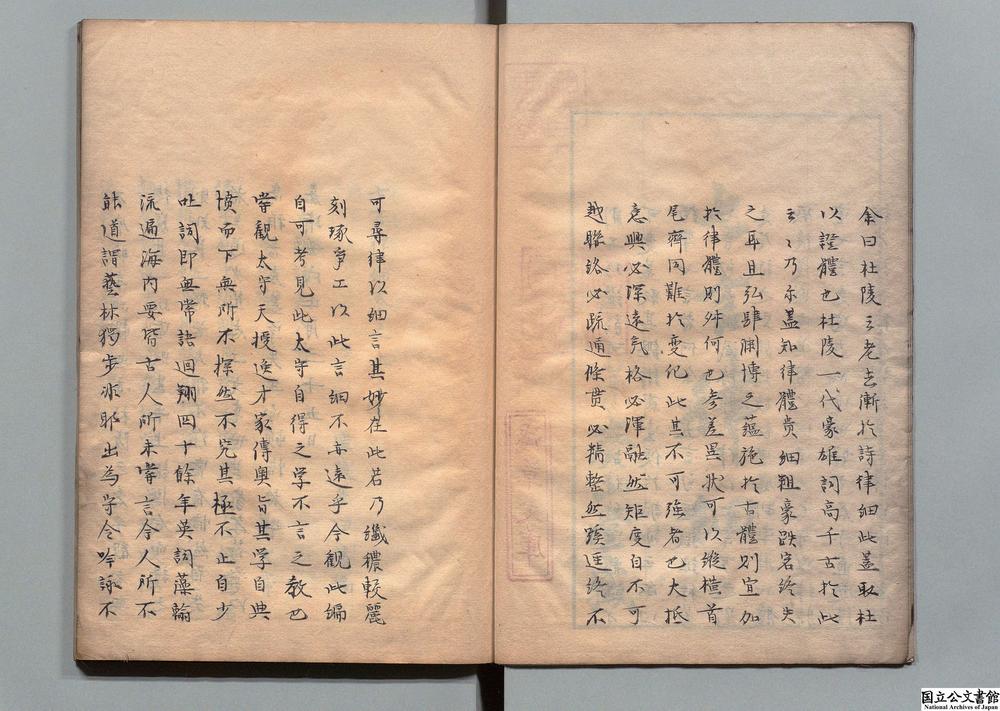 余曰杜陵云老去漸於詩律細此蓋取杜
以證體也杜陵一代豪雄詞高千古於此
云〻乃尔蓋知律體貴細粗豪跌宕終失
之耳且弘肆閎博之蘊施於古體則宜加
於律體則舛何也参差異狀可以縱横首
尾齊同難於变化此其不可強者也大抵
意興必深遠气格必渾融然矩度自不可
越聯絡必疏通條贯必精整然蹊逕終不
可尋律以細言其妙在此若乃纖穠較麗
刻琢爭工以此言細不亦遠乎今觀此编
自可考見此太守自得之学不言之教也
嘗觀太守天授逸才家傳奥旨其学自典
憤而下無所不探然不究其極不止自少
吐詞即無常語迴翔四十餘年英詞藻翰
流遍海内要皆古人所未嘗言今人所不
能道謂藝林獨步非耶出為守令吟詠不
国立公文書館
National Archives of Japan